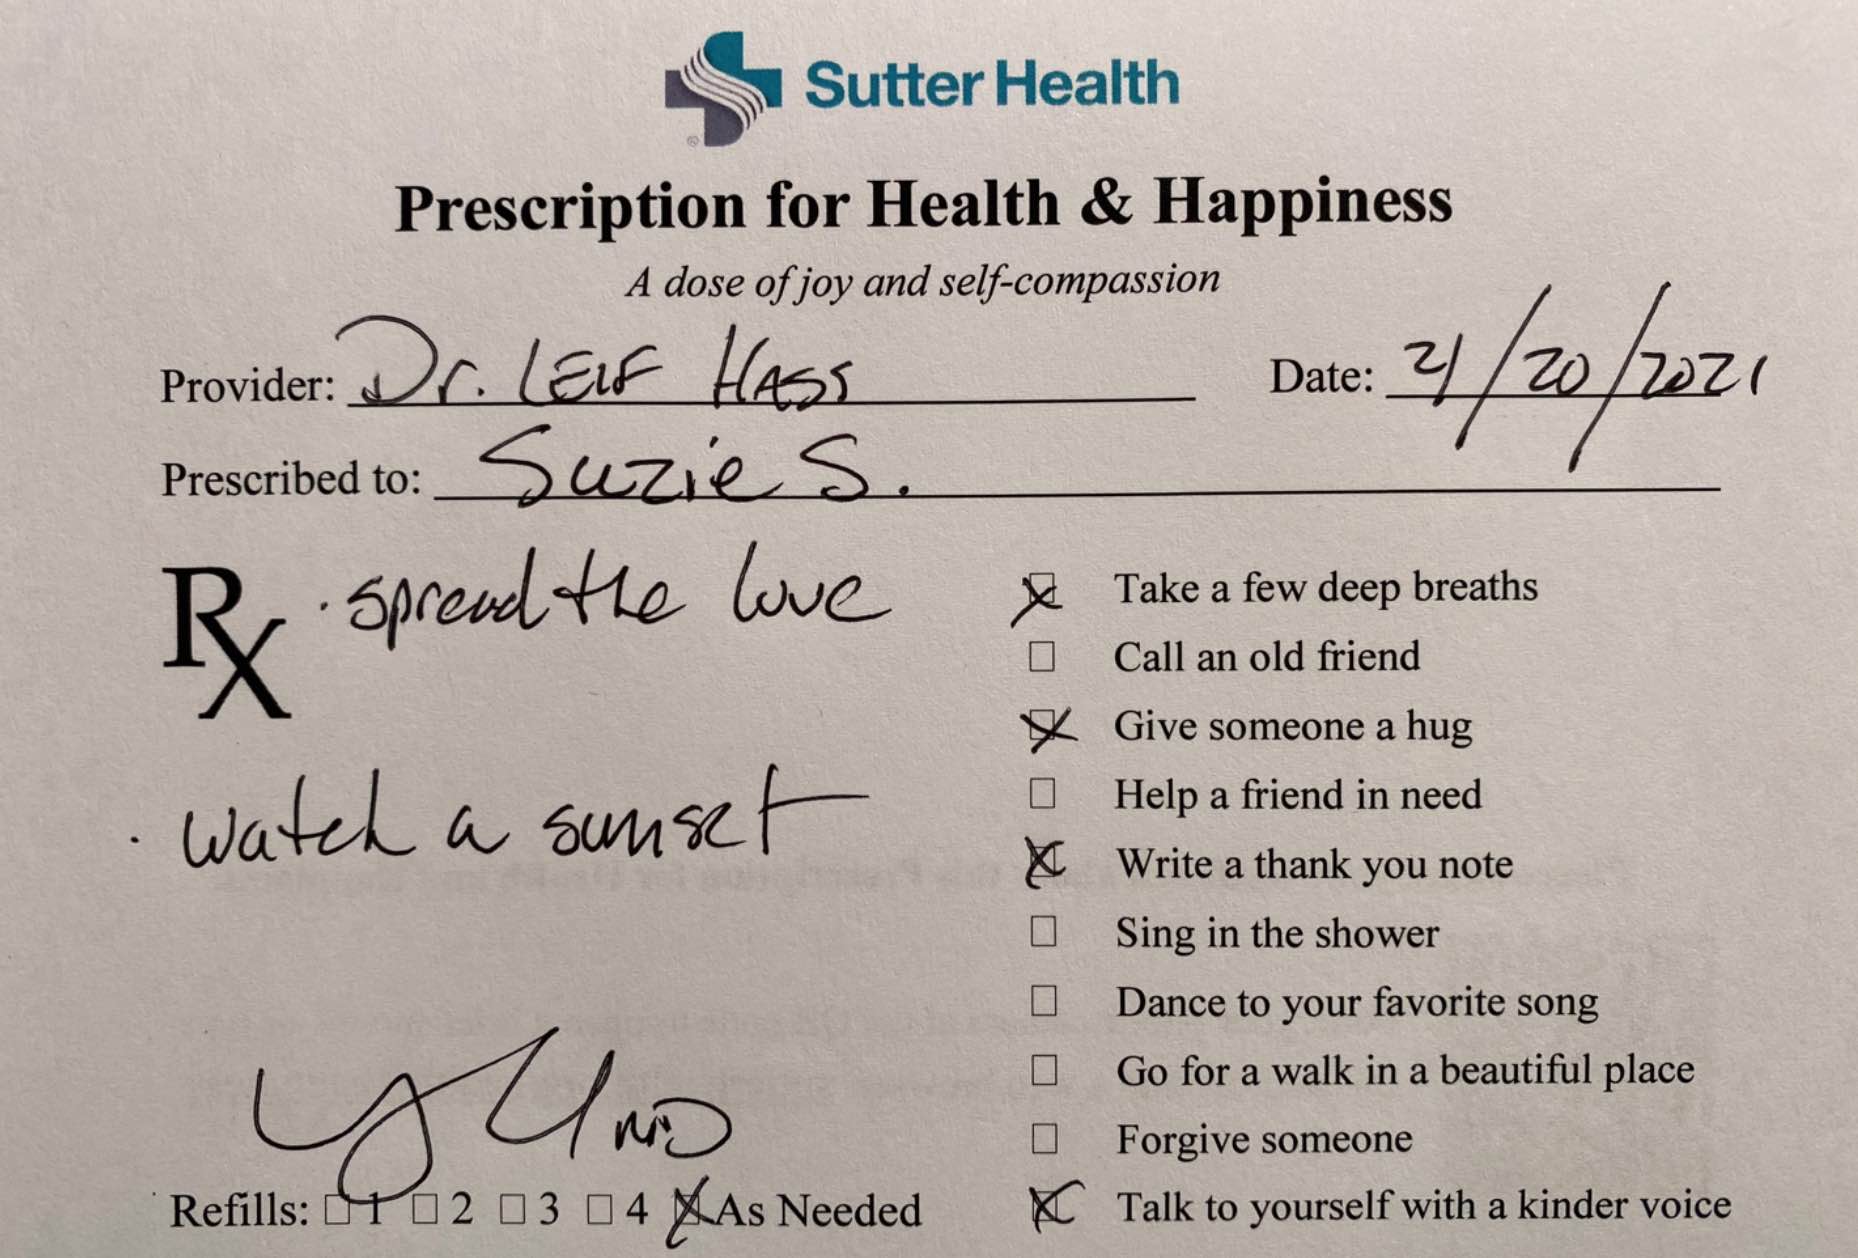 Sutter Health
®
Prescription for Health & Happiness
A dose of joy and self-compassion
Provider: Dr. LEIF HASS Date: 4/20/2021
Prescribed to: Suzie S.
Rx
· spread the love
· watch a sunset
MD
Refills: ☐ 1 ☐ 2 ☐ 3 ☐ 4 ☒ As Needed
☒ Take a few deep breaths
☐ Call an old friend
☒ Give someone a hug
☐ Help a friend in need
☒ Write a thank you note
☐ Sing in the shower
☐ Dance to your favorite song
☐ Go for a walk in a beautiful place
☐ Forgive someone
☒ Talk to yourself with a kinder voice